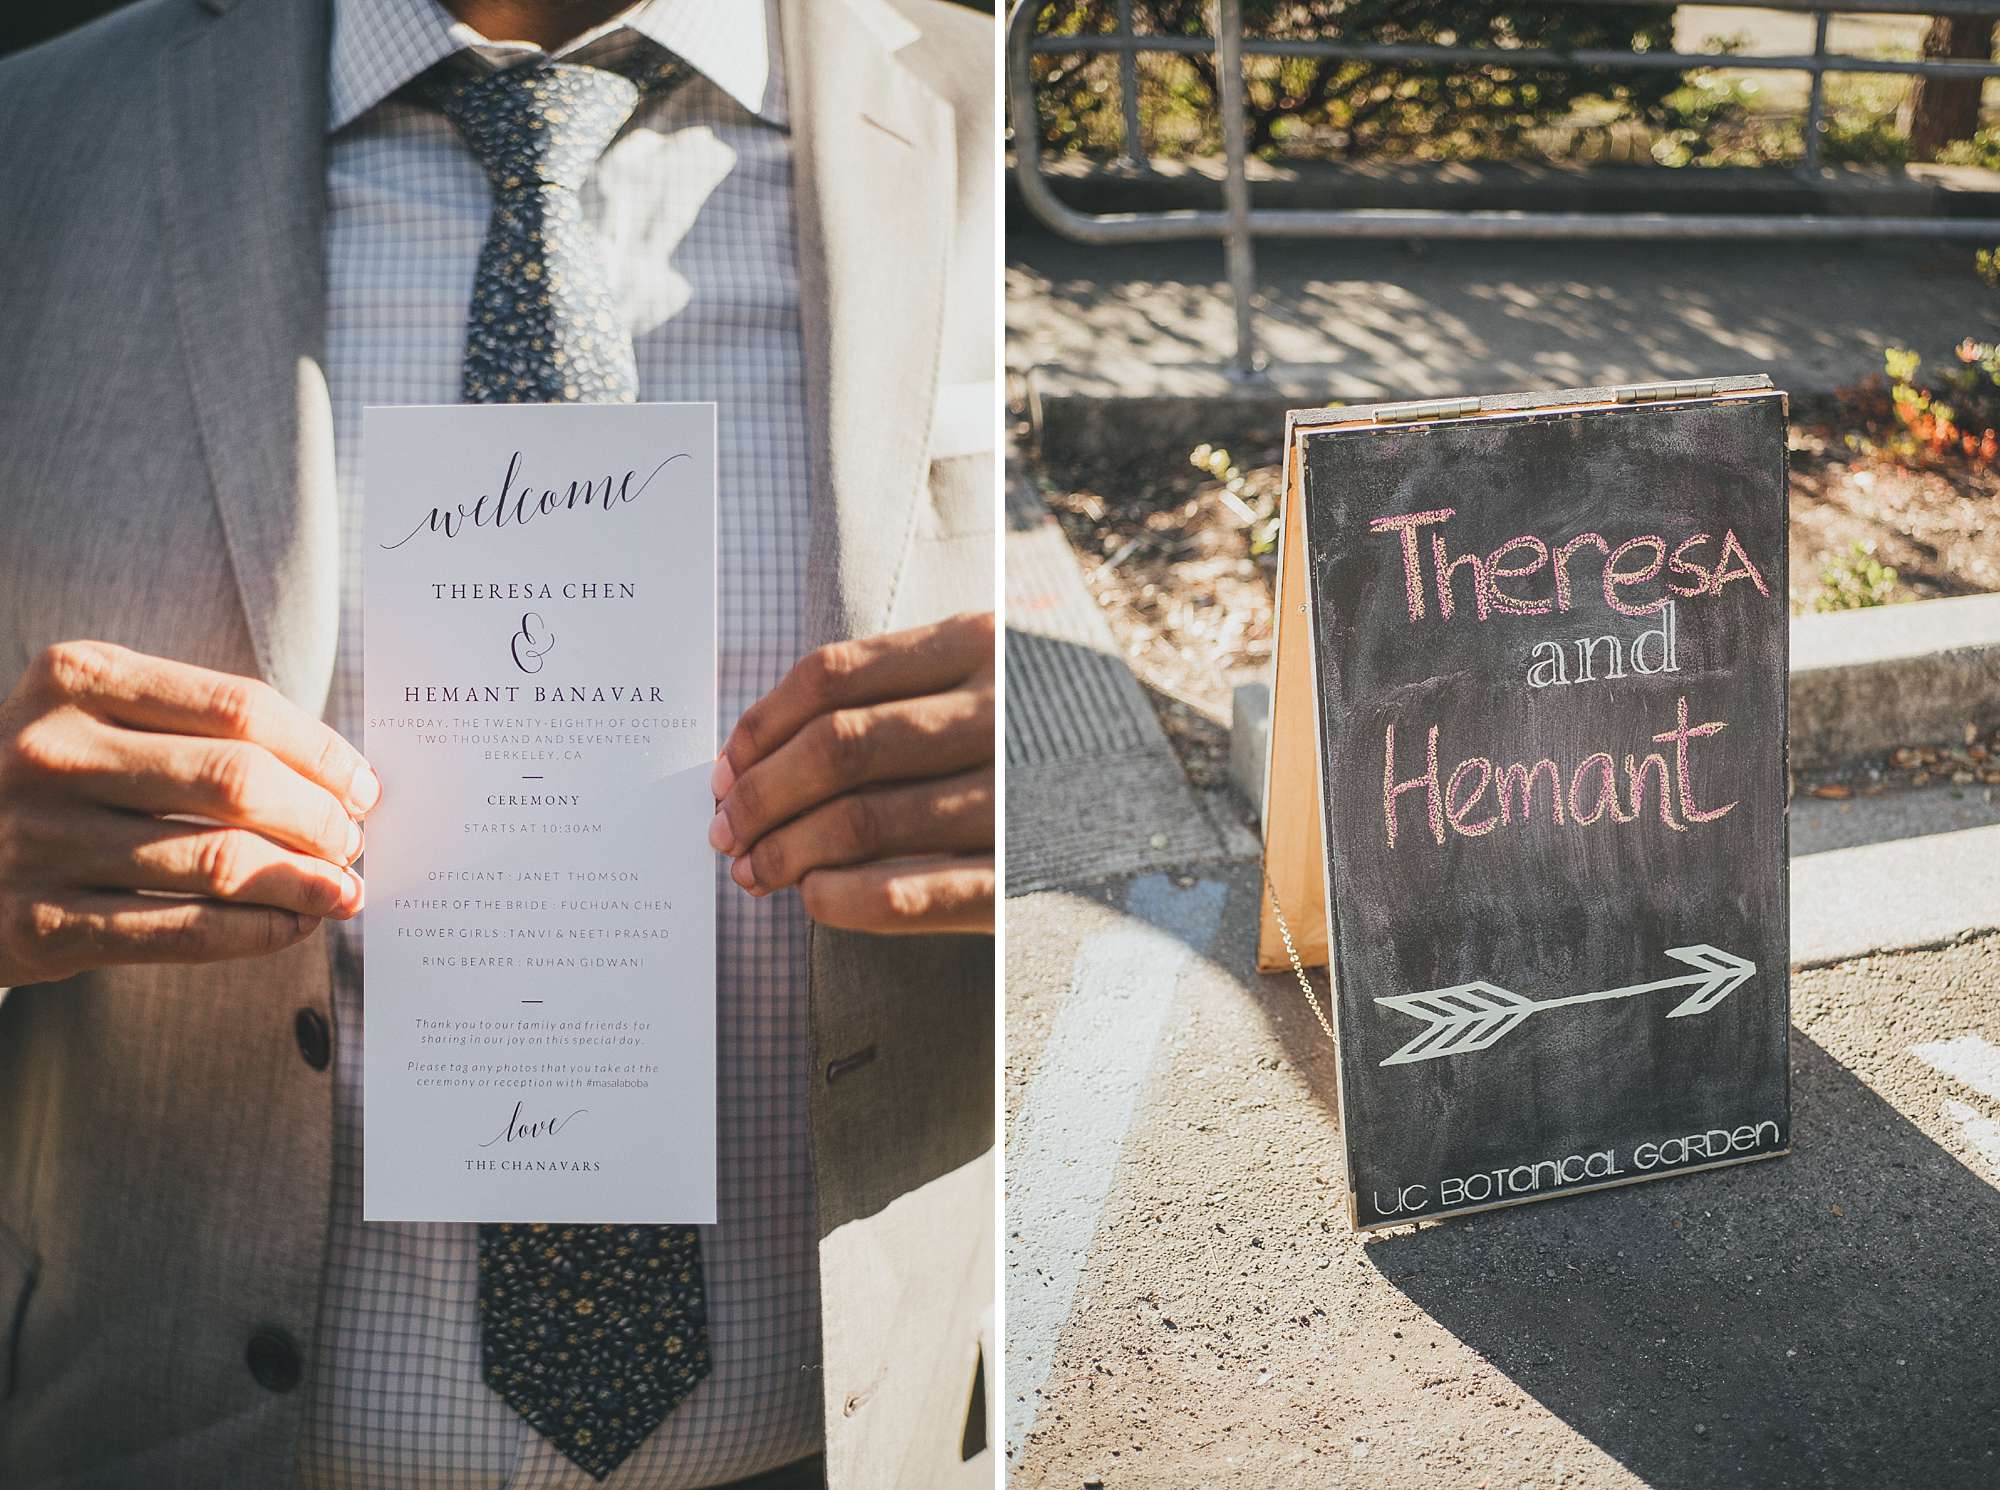 welcome
THERESA CHEN
&
HEMANT BANAVAR
SATURDAY, THE TWENTY-EIGHTH OF OCTOBER
TWO THOUSAND AND SEVENTEEN
BERKELEY, CA
CEREMONY
STARTS AT 10:30AM
OFFICIANT : JANET THOMSON
FATHER OF THE BRIDE : FUCHUAN CHEN
FLOWER GIRLS : TANVI & NEETI PRASAD
RING BEARER : RUHAN GIDWANI
Thank you to our family and friends for
sharing in our joy on this special day.
Please tag any photos that you take at the
ceremony or reception with #masalaboba
love
THE CHANAVARS
TheresA
and
Hemant
UC BOTANICAL GARDEN